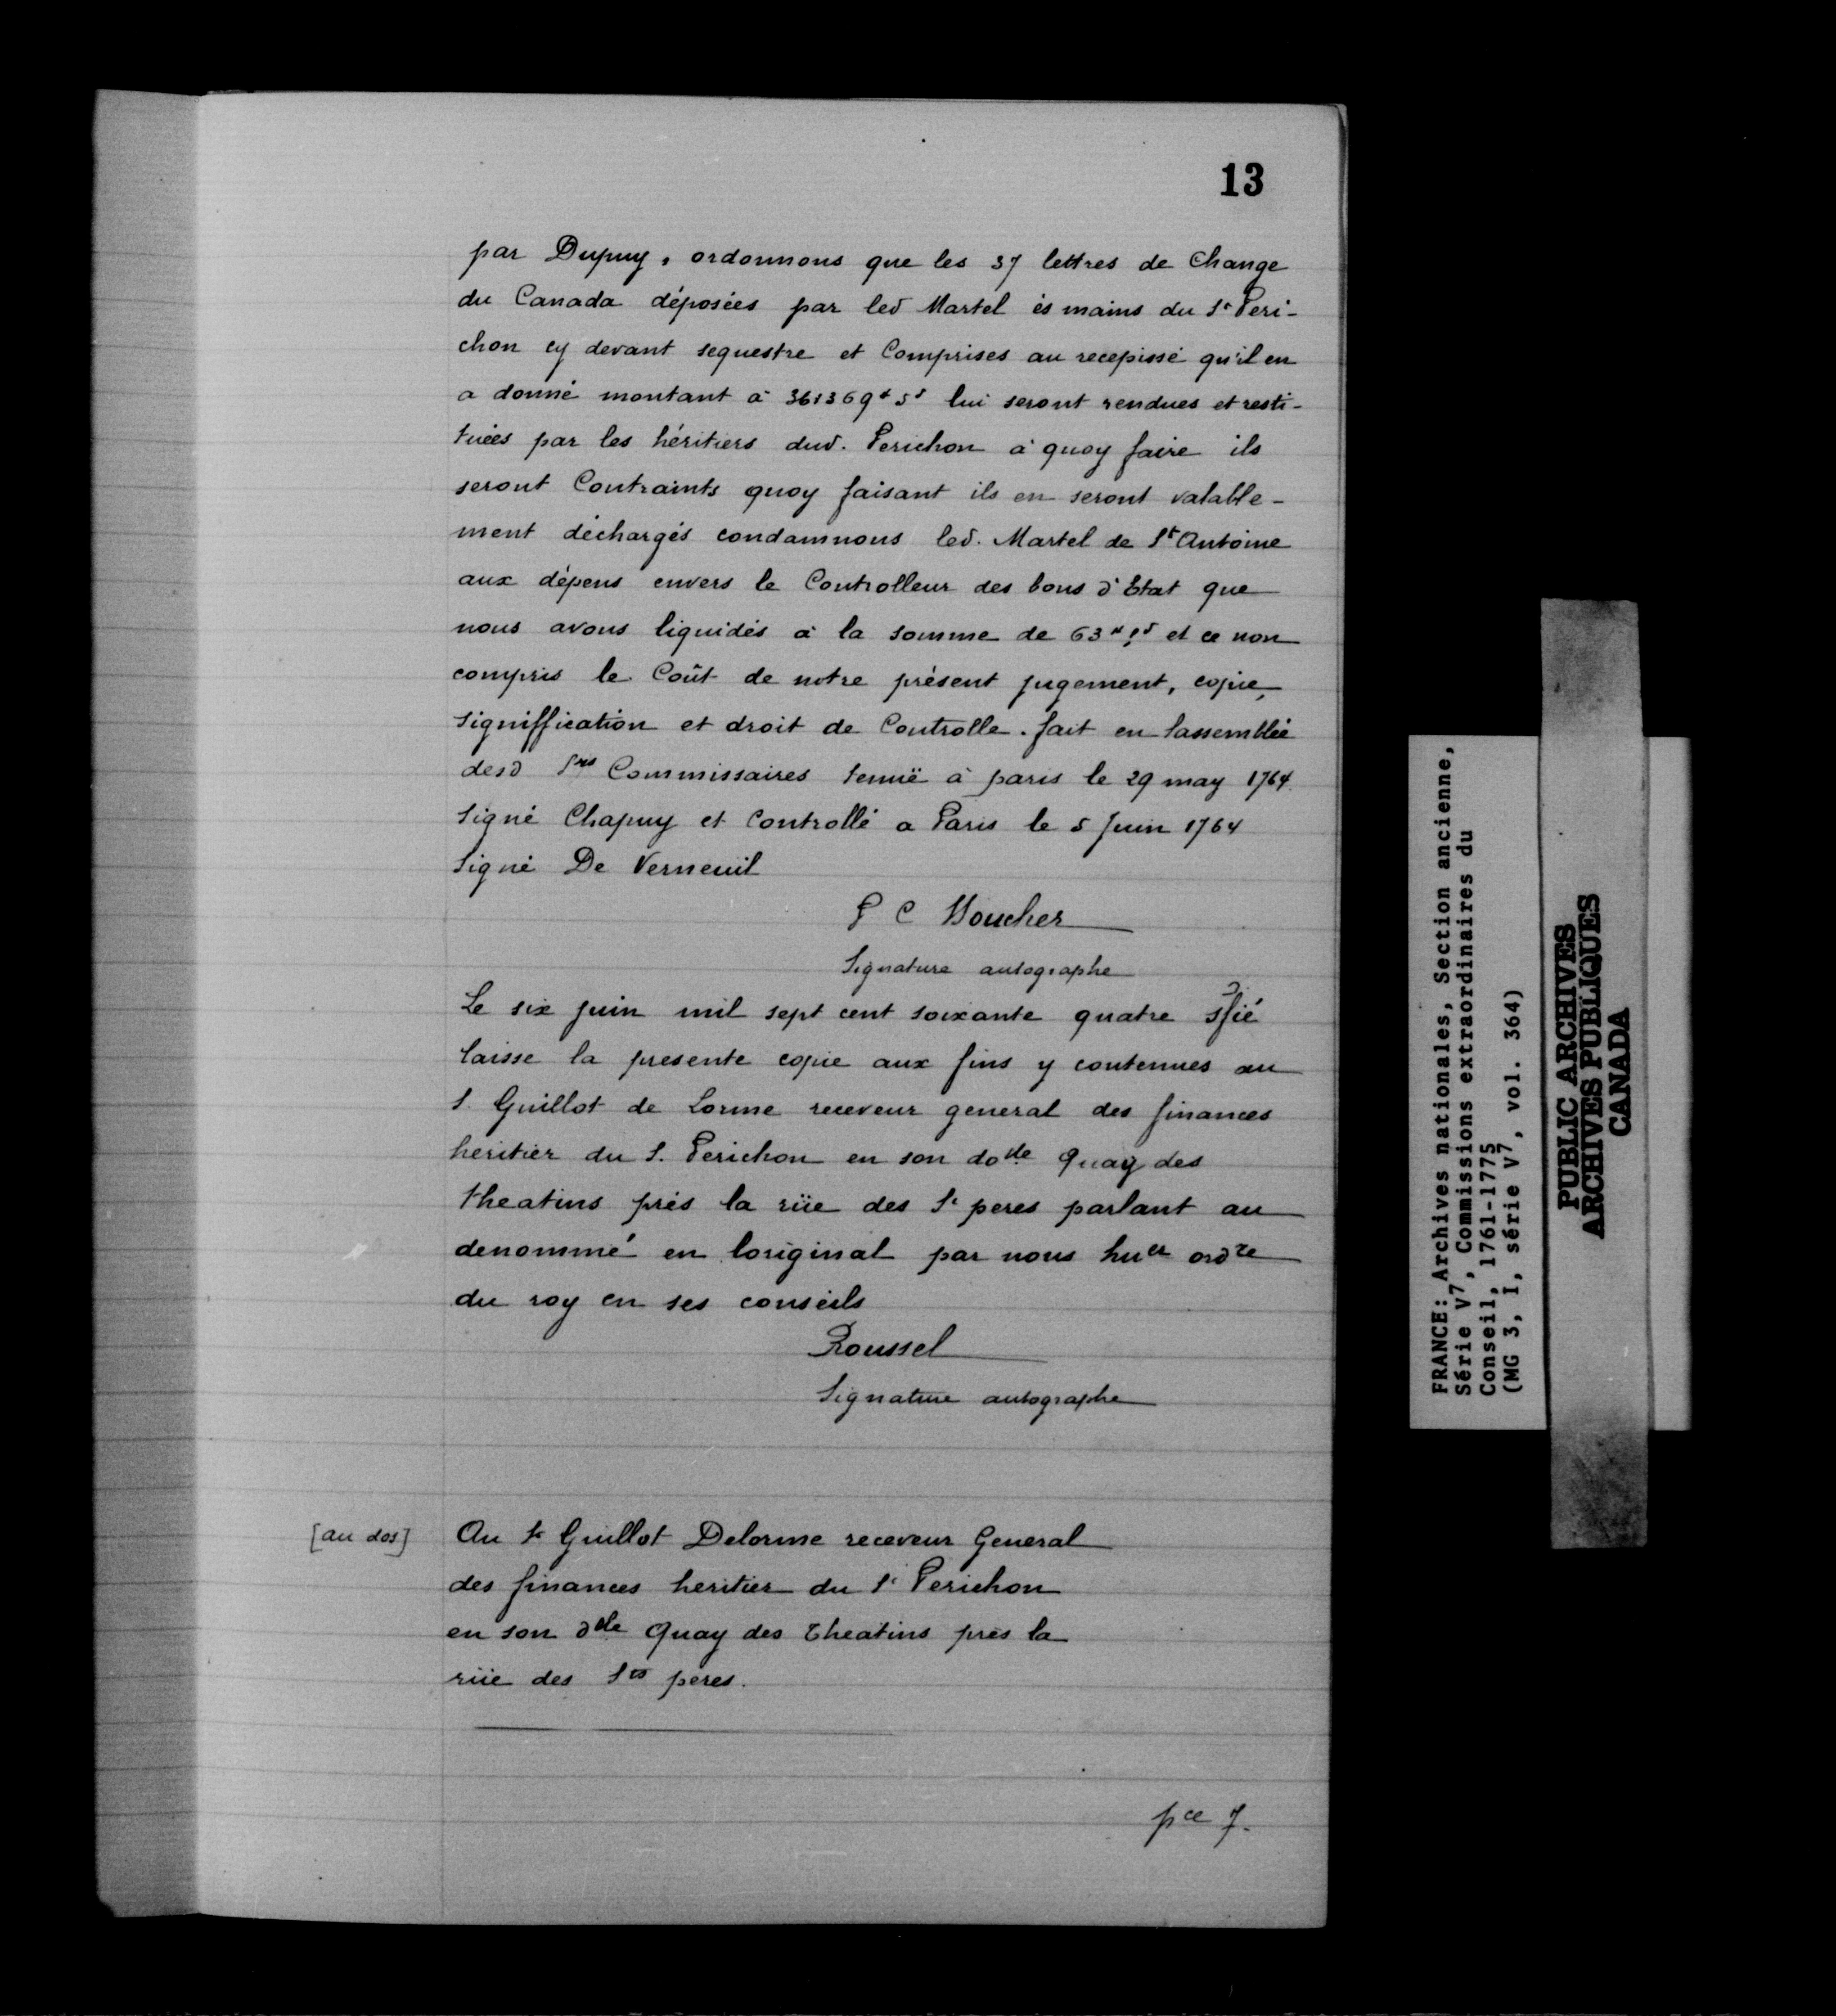 13
par Dupuy, ordonnons que les 37 lettres de Change
du Canada déposées par led Martel ès mains du Sr Peri-
chon cy devant sequestre et Comprises au recepissé qu'il en
a donné montant à 361369# 5s lui seront rendues et resti-
tuées par les héritiers dud. Perichon à quoy faire ils
seront Contraints quoy faisant ils en seront valable-
ment déchargés condamnons led. Martel de St Antoine
aux dépens envers le Controlleur des bons d'Etat que
nous avons liquidés à la somme de 63# et ce non
compris le Coût de notre présent jugement, copie,
signiffication et droit de Controlle. fait en lassemblée
desd Srs Commissaires tenüe à paris le 29 may 1764.
Signé Chapuy et Controllé a Paris le 5 Juin 1764
Signé De Verneuil
P C
Signature autographe
Le six juin mil sept cent soixante quatre sfié
laisse la presente copie aux fins y contenues au
S. Guillot de Lorme receveur general des finances
heritier du S. Perichon en son dolle Quay des
theatins prés la rüe des St peres parlant au
denommé en loriginal par nous huer ordre
du roy en ses conseils
Roussel
Signature autographe
[au dos] Au Sr Guillot Delorme receveur General
des finances heritier du Sr Perichon
en son dlle Quay des Theatins pres la
rüe des Sts peres.
pce 7.
FRANCE: Archives nationales, Section ancienne,
Série V7, Commissions extraordinaires du
Conseil, 1761-1775
(MG 3, I, série V7, vol. 364)
PUBLIC ARCHIVES
ARCHIVES PUBLIQUES
CANADA